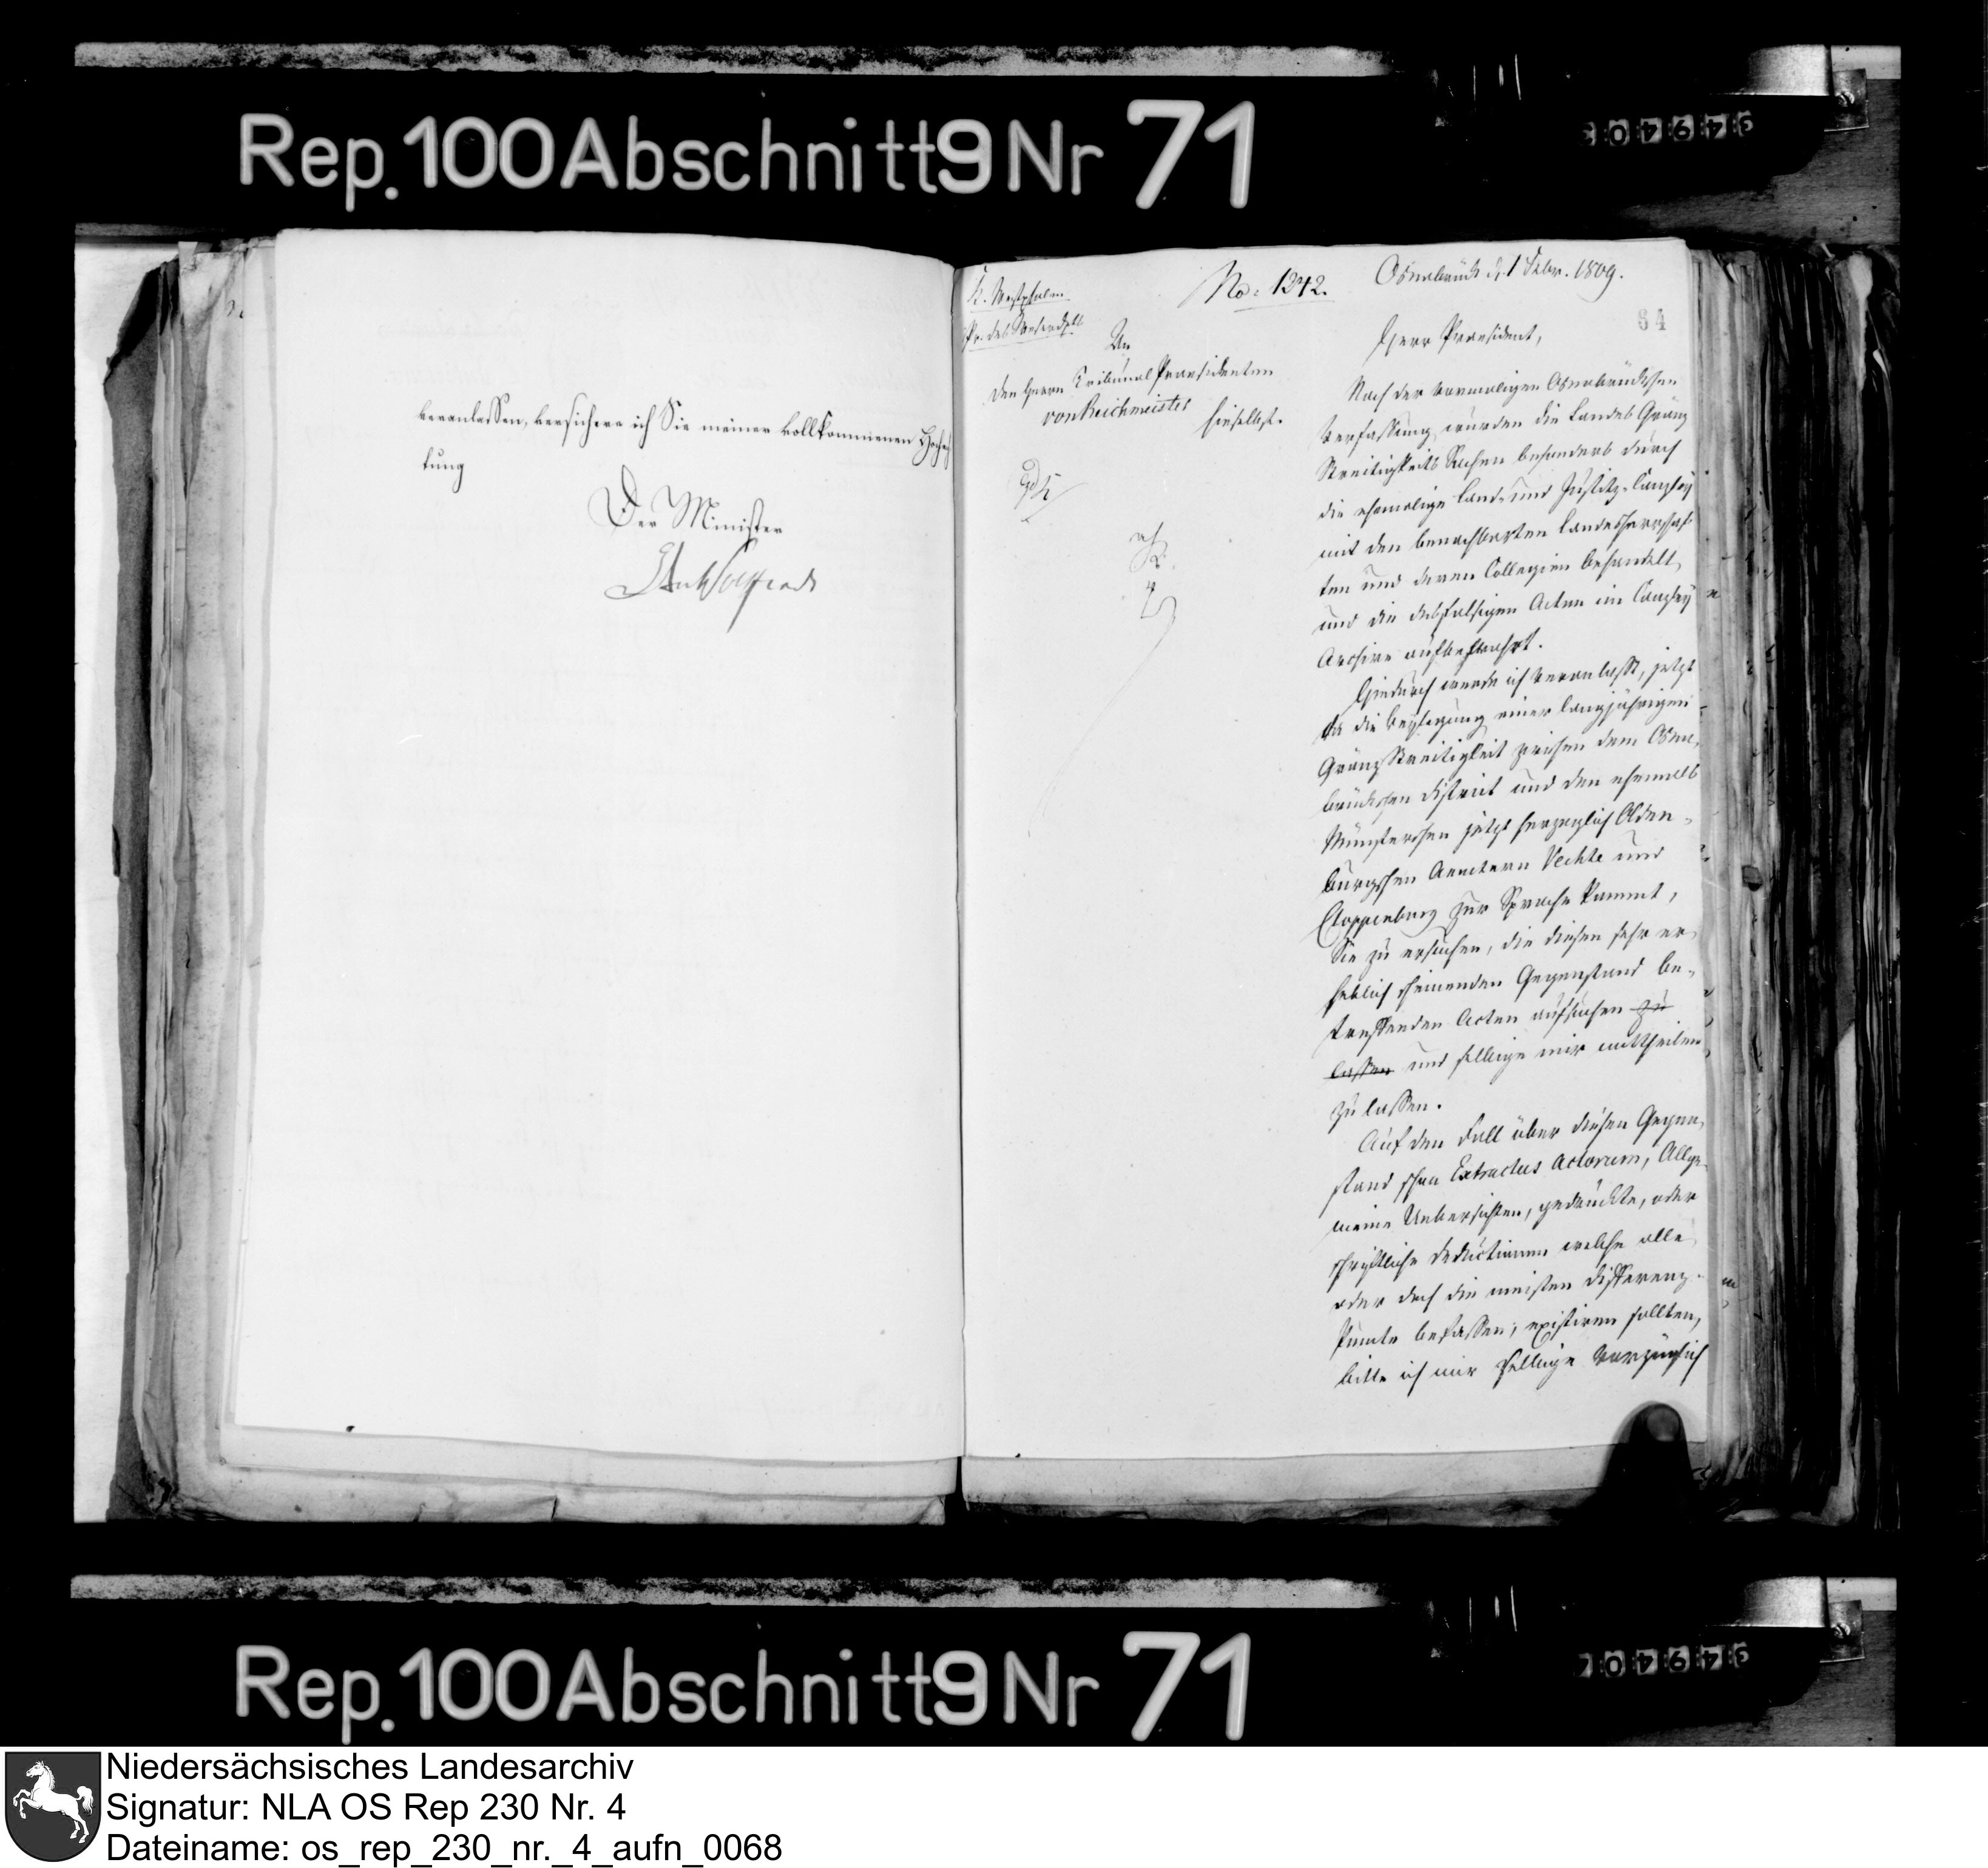 Rep. 100 Abschnitt 9 Nr 71
veranlassen, versichere ich Sie meiner vollkommenen Hochach
tung
Der Minister
K. Westphalen
Pr. des Weserdpts
No: 1242.
Osnabrück d. 1 Febr. 1809.
64
An
den Herrn Tribunal Praesidenten
von Reichmeister
hieselbst.
Herr Praesident,
Nach der vormaligen Osnabrückschen
Verfassung, wurden die Landes Gränz
Streitigkeits Sachen besonders durch
die ehemalige Land- und Justitz-Canzley
mit den benachbarten Landesherrschaf
ten und deren Collegien behandelt,
und die desfalsigen Acten im Canzley
Archive aufbewahrt.
Hiedurch werde ich veranlaßt, jetzt
da die Beylegung einer langjährigen
Gränz Streitigkeit zwischen dem Osna-
brückschen District und den ehemals
Münsterschen jetzt herzoglich Olden-
burgschen Aemtern Vechte und
Cloppenburg zur Sprache kommt,
Sie zu ersuchen, die diesen sehr er-
heblich scheinenden Gegenstand be-
treffenden Acten aufsuchen zu
lassen und selbige mir mittheilen
zu lassen.
Auf den Fall über diesen Gegen-
stand schon Extractus actorum, Allge-
meine Uebersichten, gedruckte, oder
schriftliche Deductionen welche alle
oder doch die meisten Differenz-
Puncte befassen, existiren sollten,
bitte ich mir selbige vorzüglich
Rep. 100 Abschnitt 9 Nr 71
Niedersächsisches Landesarchiv
Signatur: NLA OS Rep 230 Nr. 4
Dateiname: os_rep_230_nr._4_aufn_0068